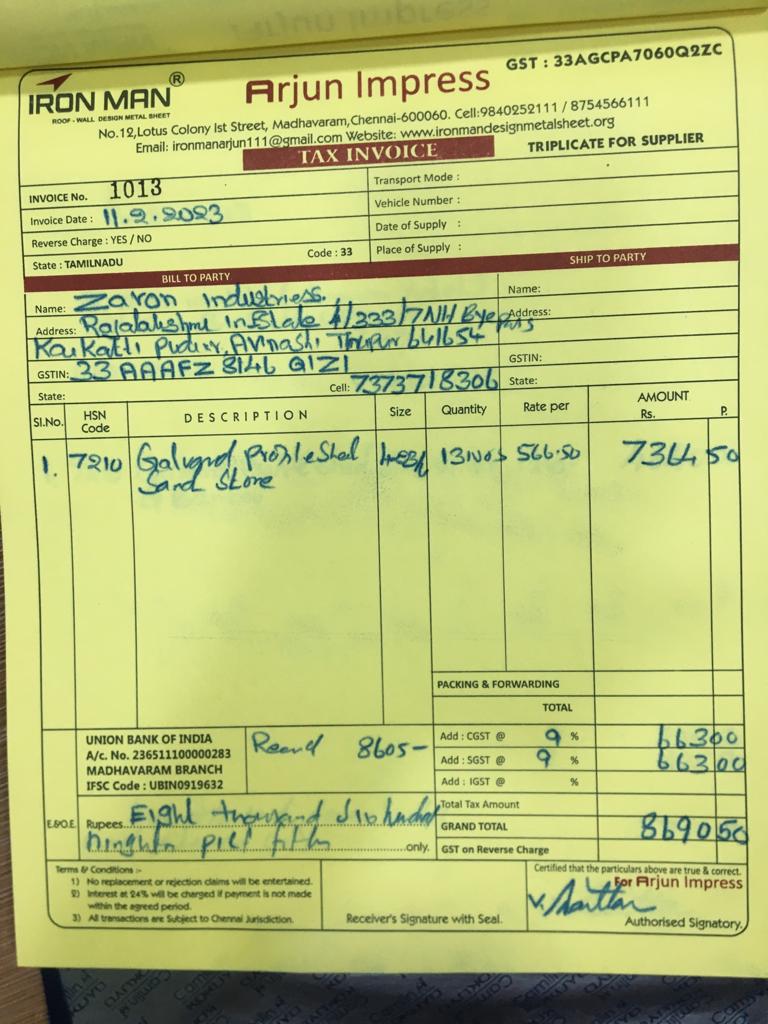 IRON MAN®
ROOF - WALL DESIGN METAL SHEET
Arjun Impress
GST : 33AGCPA7060Q2ZC
No.12,Lotus Colony Ist Street, Madhavaram,Chennai-600060. Cell:9840252111 / 8754566111
Email: ironmanarjun111@gmail.com Website: www.ironmandesignmetalsheet.org
TAX INVOICE
TRIPLICATE FOR SUPPLIER
INVOICE No. 1013
Invoice Date : 11.2.2023
Reverse Charge : YES / NO
State : TAMILNADU Code : 33
Transport Mode :
Vehicle Number :
Date of Supply :
Place of Supply :
BILL TO PARTY
Name: Zaron Industriess.
Address: Rajalakshmi InState 4/333/7 NH Bye pass
Pudur, AVinashi Tirupur 641654
GSTIN: 33 AAAFZ 8146 Q1Z1
State: Cell: 7373718306
SHIP TO PARTY
Name:
Address:
GSTIN:
State:
Sl.No. HSN Code DESCRIPTION Size Quantity Rate per AMOUNT Rs. P.
1. 7210 Profile Sheet 13Nos 566.50 7364 50
Sand Stone
PACKING & FORWARDING
TOTAL
UNION BANK OF INDIA
A/c. No. 236511100000283
MADHAVARAM BRANCH
IFSC Code : UBIN0919632
8605-
Add : CGST @ 9 % 663 00
Add : SGST @ 9 % 663 00
Add : IGST @ %
Total Tax Amount
GRAND TOTAL 8690 50
GST on Reverse Charge
E.&O.E. Rupees Eight thousand Six hundred
only.
Terms & Conditions :-
1) No replacement or rejection claims will be entertained.
2) Interest at 24% will be charged if payment is not made
within the agreed period.
3) All transactions are Subject to Chennai Jurisdiction.
Receiver's Signature with Seal.
Certified that the particulars above are true & correct.
For Arjun Impress
Authorised Signatory.